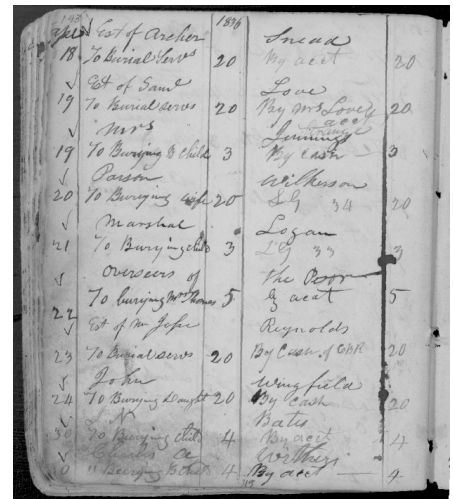 193 1896
Est of Archer Snead
18 To Burial Servs 20 By acct 20
Est of Saml Love
19 To Burial servs 20 By Mrs Love acct 20
Mrs Jennings
19 To Burying B child 3 By Cash 3
Parson Wilkerson
20 To Burying wife 20 LG 34 20
Marshal Logan
21 To Burying child 3 LG 33 3
overseers of the Poor
22 To burying Mrs 5 By acct 5
Est of Mr Jesse Reynolds
23 To Burial servs 20 By Cash of 20
John Wingfield
24 To Burying Daught 20 By Cash 20
Bates
30 To Burying child 4 By acct 4
Charles a Withers
30 " Burying B child 4 By acct 4